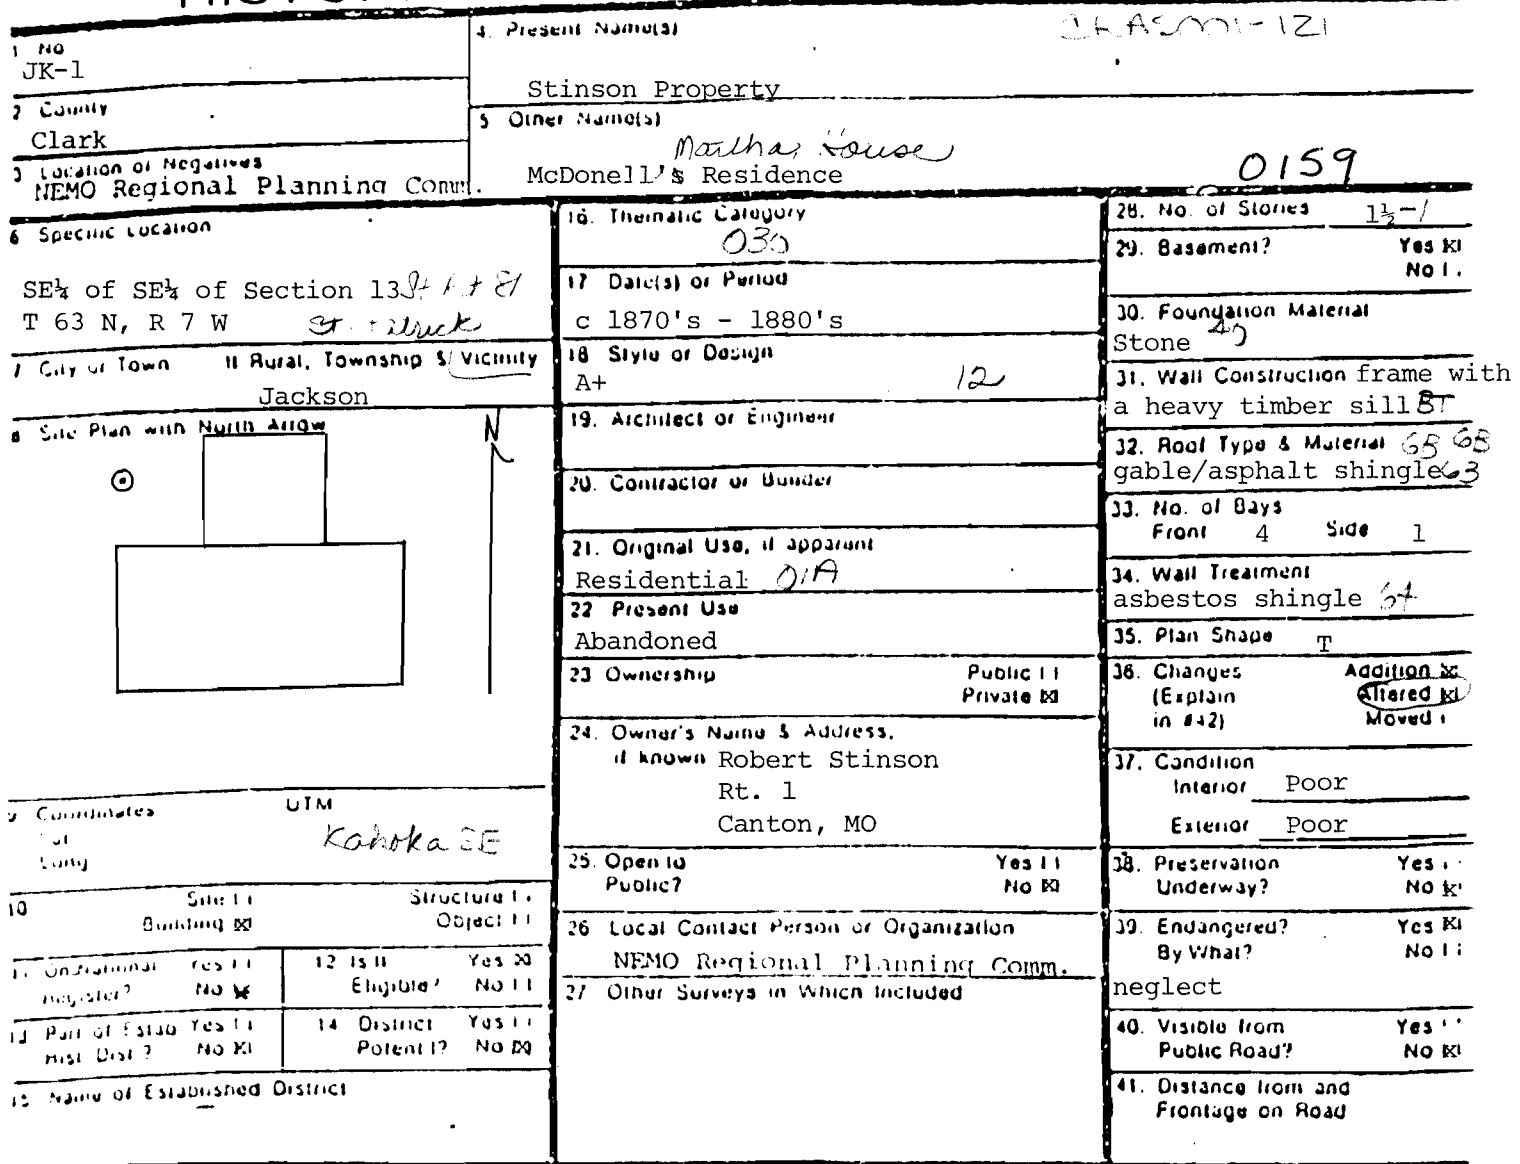 1 No
JK-1
2 County
Clark
3 Location of Negatives
NEMO Regional Planning Comm.
4. Present Name(s)
Stinson Property
5 Other Name(s)
Martha, House
McDonell's Residence
0159
6 Specific Location
SE¼ of SE¼ of Section 13
T 63 N, R 7 W
7 City or Town If Rural, Township & Vicinity
Jackson
8 Site Plan with North Arrow
N
9 Coordinates UTM
Lat
Long
Kahoka SE
10 Site
Structure
Building ☒
Object
11 On National Register? Yes
No ☒
12 Is It Eligible? Yes ☒
No
13 Part of Estab Hist. Dist? Yes
No ☒
14 District Potent'l? Yes
No ☒
15 Name of Established District
16. Thematic Category
030
17 Date(s) or Period
c 1870's - 1880's
18 Style or Design
A+ 12
19. Architect or Engineer
20. Contractor or Builder
21. Original Use, if apparent
Residential 01A
22 Present Use
Abandoned
23 Ownership Public
Private ☒
24. Owner's Name & Address,
if known Robert Stinson
Rt. 1
Canton, MO
25. Open to Public? Yes
No ☒
26 Local Contact Person or Organization
NEMO Regional Planning Comm.
27 Other Surveys in Which Included
28. No. of Stories 1½-1
29. Basement? Yes ☒
No
30. Foundation Material
Stone 40
31. Wall Construction frame with
a heavy timber sill BT
32. Roof Type & Material GB GB
gable/asphalt shingle 63
33. No. of Bays
Front 4 Side 1
34. Wall Treatment
asbestos shingle 64
35. Plan Shape T
36. Changes Addition ☒
(Explain Altered ☒
in #42) Moved
37. Condition
Interior Poor
Exterior Poor
38. Preservation Yes
Underway? No ☒
39. Endangered? Yes ☒
By What? No
neglect
40. Visible from Yes
Public Road? No ☒
41. Distance from and
Frontage on Road